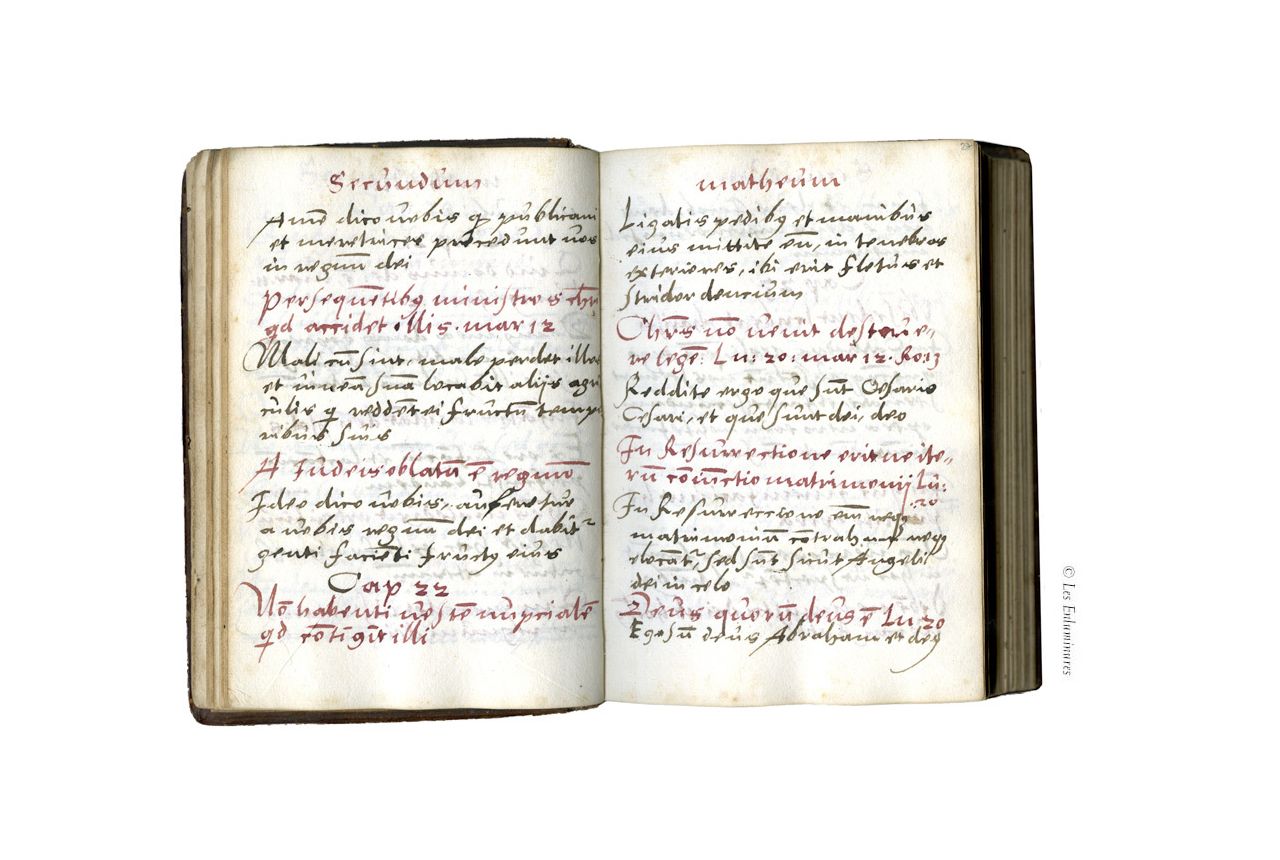 Secundum
Amē dico uobis ꝙ publicani
et meretrices precedunt uos
in regnū dei
persequētibꝰ ministros chri
qd accidet illis. mar 12
Mali cū sint, male perdet illos
et uineā suā locabit alijs agri
culis ꝙ reddēt ei fructū tempo
ribus suis
A Iudeis oblatū ē regnū
Ideo dico uobis, auferetur
a uobis regnū dei et dabit᷑
genti faciēti fructꝰ eius
Cap 22
Nō habenti uestē nupcialē
qd cōtigit illi
matheum
27
Ligatis pedibꝰ et manibus
eius mittite eū, in tenebras
exteriores, ibi erit fletus et
stridor dencium
Chrs nō uenit destrue〃
re legē: Lu: 20: mar 12. Ro: 13
Reddite ergo que sūt Cesaris
Cesari, et que sunt dei, deo
In Resurrectione erit ne ite〃
rū cōiūctio matrimonij Lu:
.20
In Resurreccione eīm neqꝫ
matrimoniū cōtrahunt neqꝫ
elocāt᷑, sed sūt sicut Angeli
dei in celo
Deus quorū deus ē Lu 20
Ego sū deus Abraham et deꝰ
© Les Enluminures